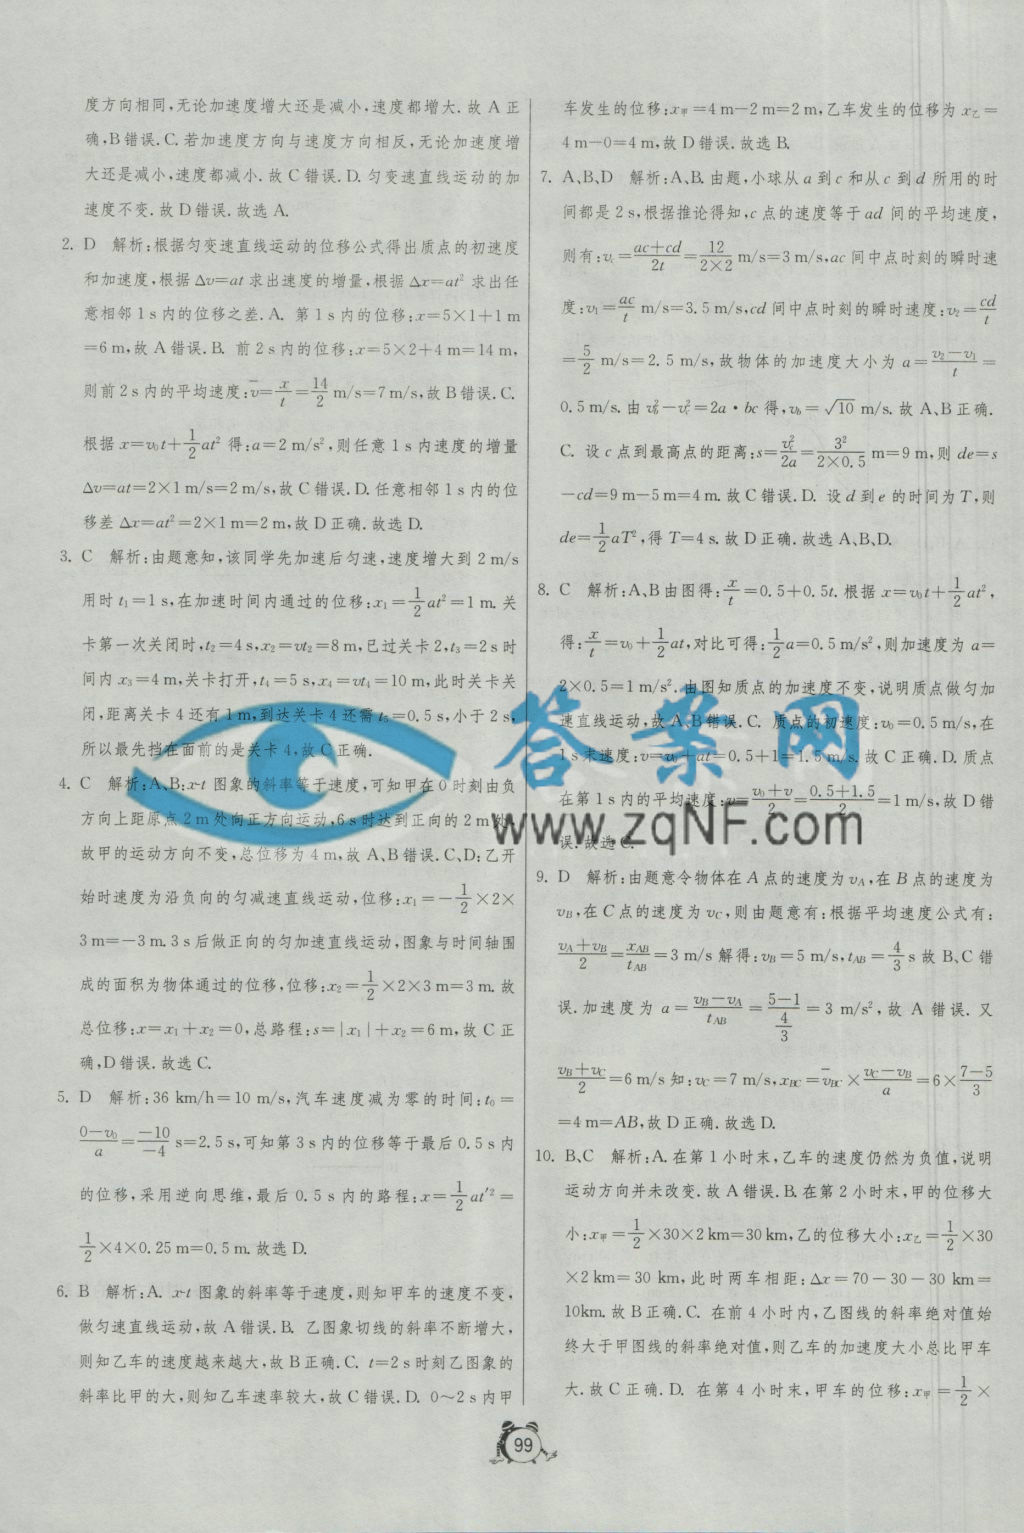 度方向相同,无论加速度增大还是减小,速度都增大.故A正
确,B错误.C.若加速度方向与速度方向相反,无论加速度增
大还是减小,速度都减小.故C错误.D.匀变速直线运动的加
速度不变.故D错误.故选A.
2. D 解析:根据匀变速直线运动的位移公式得出质点的初速度
和加速度,根据Δv=at求出速度的增量,根据Δx=at²求出任
意相邻1s内的位移之差.A. 第1s内的位移:x=5×1+1m
=6m,故A错误.B. 前2s内的位移:x=5×2+4m=14m,
则前2s内的平均速度:v̄=x/t=14/2 m/s=7m/s,故B错误.C.
根据x=v₀t+1/2at²得:a=2m/s²,则任意1s内速度的增量
Δv=at=2×1m/s=2m/s,故C错误.D.任意相邻1s内的位
移差Δx=at²=2×1m=2m,故D正确.故选D.
3. C 解析:由题意知,该同学先加速后匀速,速度增大到2m/s
用时t₁=1s,在加速时间内通过的位移:x₁=1/2at²=1m.关
卡第一次关闭时,t₂=4s,x₂=vt₂=8m,已过关卡2,t₃=2s时
间内x₃=4m,关卡打开,t₄=5s,x₄=vt₄=10m,此时关卡关
闭,距离关卡4还有1m,到达关卡4还需t₅=0.5s,小于2s,
所以最先挡在面前的是关卡4,故C正确.
4. C 解析:A、B:x-t图象的斜率等于速度,可知甲在0时刻由负
方向上距原点2m处向正方向运动,6s时达到正向的2m处,
故甲的运动方向不变,总位移为4m,故A、B错误.C、D:乙开
始时速度为沿负向的匀减速直线运动,位移:x₁=-1/2×2×
3m=-3m.3s后做正向的匀加速直线运动,图象与时间轴围
成的面积为物体通过的位移,位移:x₂=1/2×2×3m=3m.故
总位移:x=x₁+x₂=0,总路程:s=|x₁|+x₂=6m,故C正
确,D错误.故选C.
5. D 解析:36km/h=10m/s,汽车速度减为零的时间:t₀=
(0-v₀)/a=-10/-4 s=2.5s,可知第3s内的位移等于最后0.5s内
的位移,采用逆向思维,最后0.5s内的路程:x=1/2at′²=
1/2×4×0.25m=0.5m.故选D.
6. B 解析:A. x-t图象的斜率等于速度,则知甲车的速度不变,
做匀速直线运动,故A错误.B. 乙图象切线的斜率不断增大,
则知乙车的速度越来越大,故B正确.C. t=2s时刻乙图象的
斜率比甲的大,则知乙车速率较大,故C错误.D. 0~2s内甲
车发生的位移:x甲=4m-2m=2m,乙车发生的位移为x乙=
4m-0=4m,故D错误.故选B.
7. A、B、D 解析:A、B.由题,小球从a到c和从c到d所用的时
间都是2s,根据推论得知,c点的速度等于ad间的平均速度,
则有:v_c=(ac+cd)/2t=12/(2×2) m/s=3m/s,ac间中点时刻的瞬时速
度:v₁=ac/t m/s=3.5m/s,cd间中点时刻的瞬时速度:v₂=cd/t
=5/2 m/s=2.5m/s,故物体的加速度大小为a=(v₂-v₁)/t=
0.5m/s.由v_b²-v_c²=2a·bc得,v_b=√10 m/s.故A、B正确.
C. 设c点到最高点的距离:s=v_c²/2a=3²/(2×0.5) m=9m,则de=s
-cd=9m-5m=4m.故C错误.D. 设d到e的时间为T,则
de=1/2aT²,得T=4s.故D正确.故选A、B、D.
8. C 解析:A、B由图得:x/t=0.5+0.5t.根据x=v₀t+1/2at²,
得:x/t=v₀+1/2at,对比可得:1/2a=0.5m/s²,则加速度为a=
2×0.5=1m/s².由图知质点的加速度不变,说明质点做匀加
速直线运动,故A、B错误.C. 质点的初速度:v₀=0.5m/s,在
1s末速度:v=v₀+at=0.5+1=1.5m/s.故C正确.D.质点
在第1s内的平均速度:v=(v₀+v)/2=(0.5+1.5)/2=1m/s,故D错
误.故选C.
9. D 解析:由题意令物体在A点的速度为v_A,在B点的速度为
v_B,在C点的速度为v_C,则由题意有:根据平均速度公式有:
(v_A+v_B)/2=x_AB/t_AB=3m/s解得:v_B=5m/s,t_AB=4/3 s故B、C错
误.加速度为a=(v_B-v_A)/t_AB=(5-1)/(4/3)=3m/s²,故A错误.又
(v_B+v_C)/2=6m/s知:v_C=7m/s,x_BC=v̄_BC×(v_C-v_B)/a=6×(7-5)/3
=4m=AB,故D正确.故选D.
10. B、C 解析:A.在第1小时末,乙车的速度仍然为负值,说明
运动方向并未改变.故A错误.B.在第2小时末,甲的位移大
小:x甲=1/2×30×2km=30km,乙的位移大小:x乙=1/2×30
×2km=30km,此时两车相距:Δx=70-30-30km=
10km.故B正确.C. 在前4小时内,乙图线的斜率绝对值始
终大于甲图线的斜率绝对值,则乙车的加速度大小总比甲车
大.故C正确.D. 在第4小时末,甲车的位移:x甲=1/2×
答案网
www.zqNF.com
99